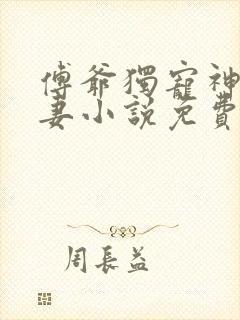 傅爺獨寵神
妻小說免費
周長益